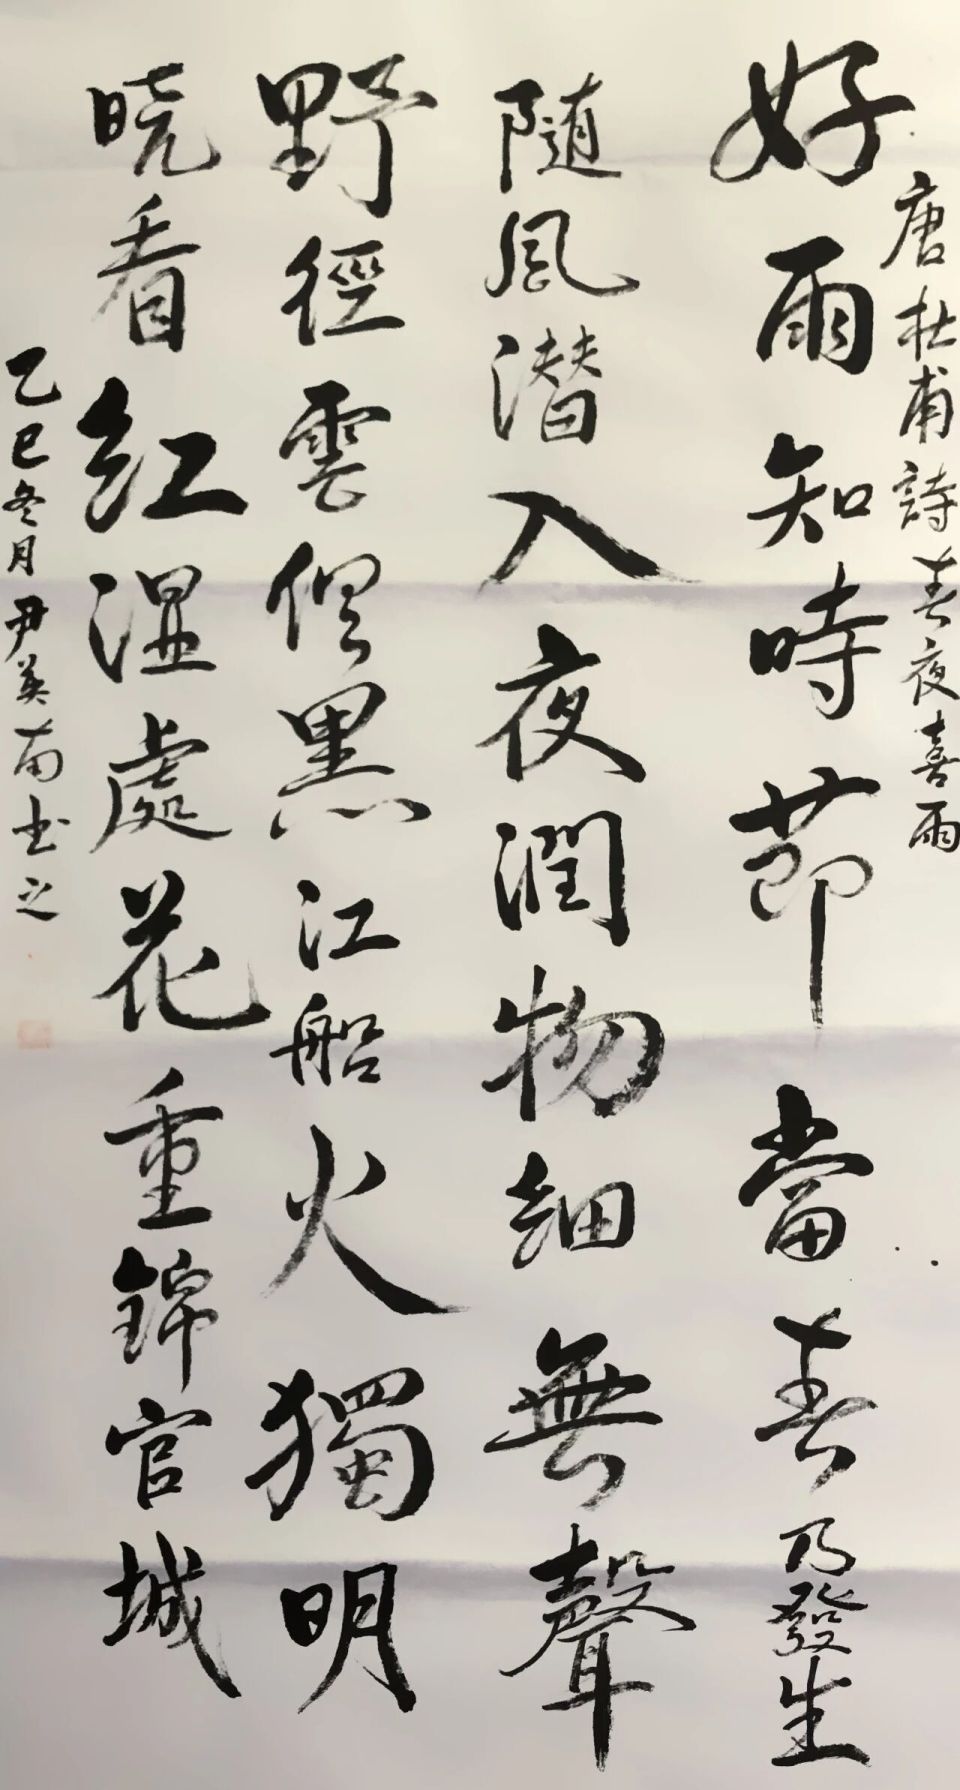 唐杜甫詩春夜喜雨
好雨知時節當春乃發生
隨風潛入夜潤物細無聲
野徑雲俱黑江船火獨明
曉看紅濕處花重錦官城
乙巳冬月尹英萳书之